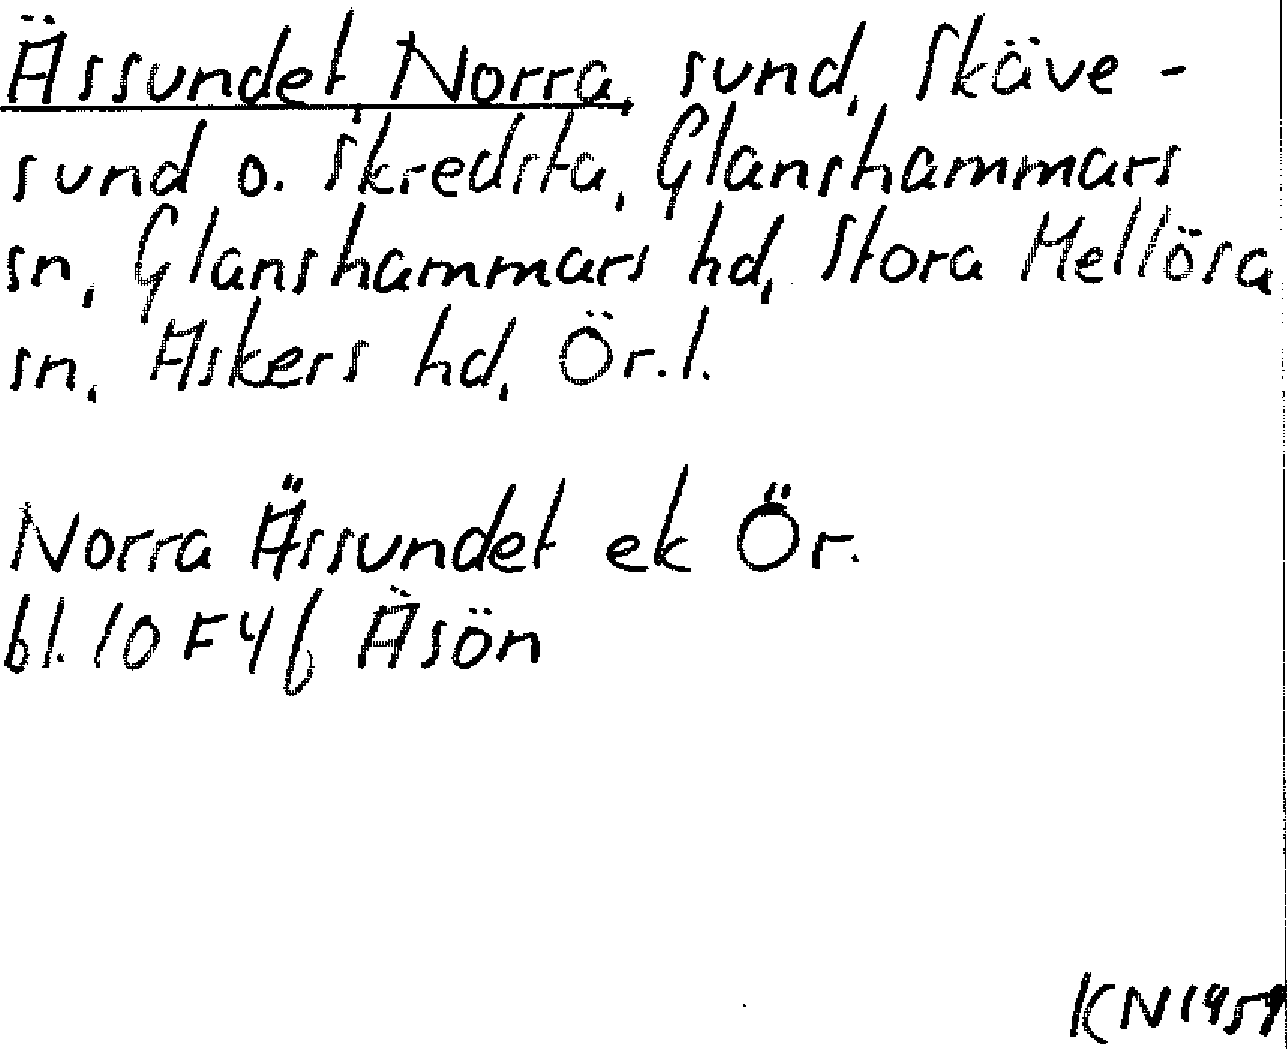 Ässundet, Norra, sund, Skäve-
sund o. Skredsta, Glanshammars
sn, Glanshammars hd, Stora Mellösa
sn, Askers hd, Ör. l.
Norra Ässundet ek Ör.
bl. 10 F 4 f Äsön
KN 1959